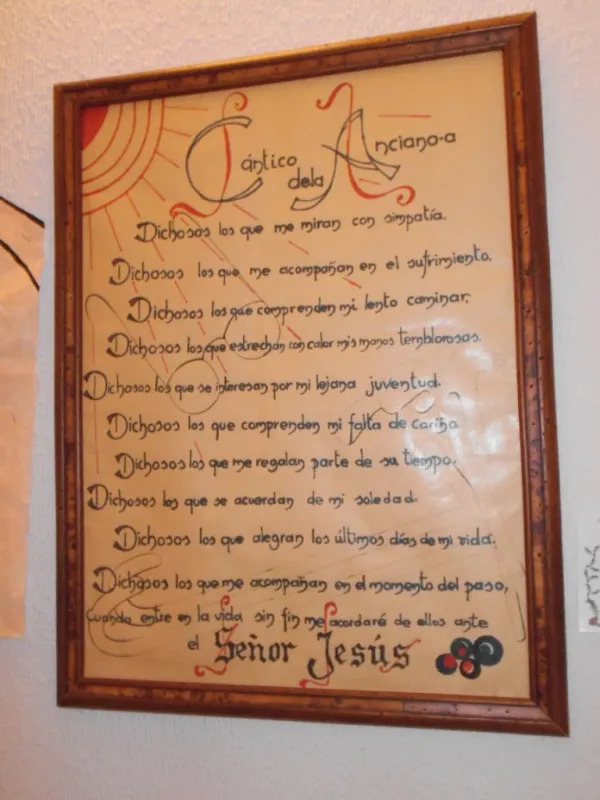 Cántico dela Anciano-a
Dichosos los que me miran con simpatía.
Dichosos los que me acompañan en el sufrimiento.
Dichosos los que comprenden mi lento caminar.
Dichosos los que estrechan con calor mis manos temblorosas.
Dichosos los que se interesan por mi lejana juventud.
Dichosos los que comprenden mi falta de cariño.
Dichosos los que me regalan parte de su tiempo.
Dichosos los que se acuerdan de mi soledad.
Dichosos los que alegran los últimos días de mi vida.
Dichosos los que me acompañan en el momento del paso,
Cuando entre en la vida sin fin me acordaré de ellos ante
el Señor Jesús